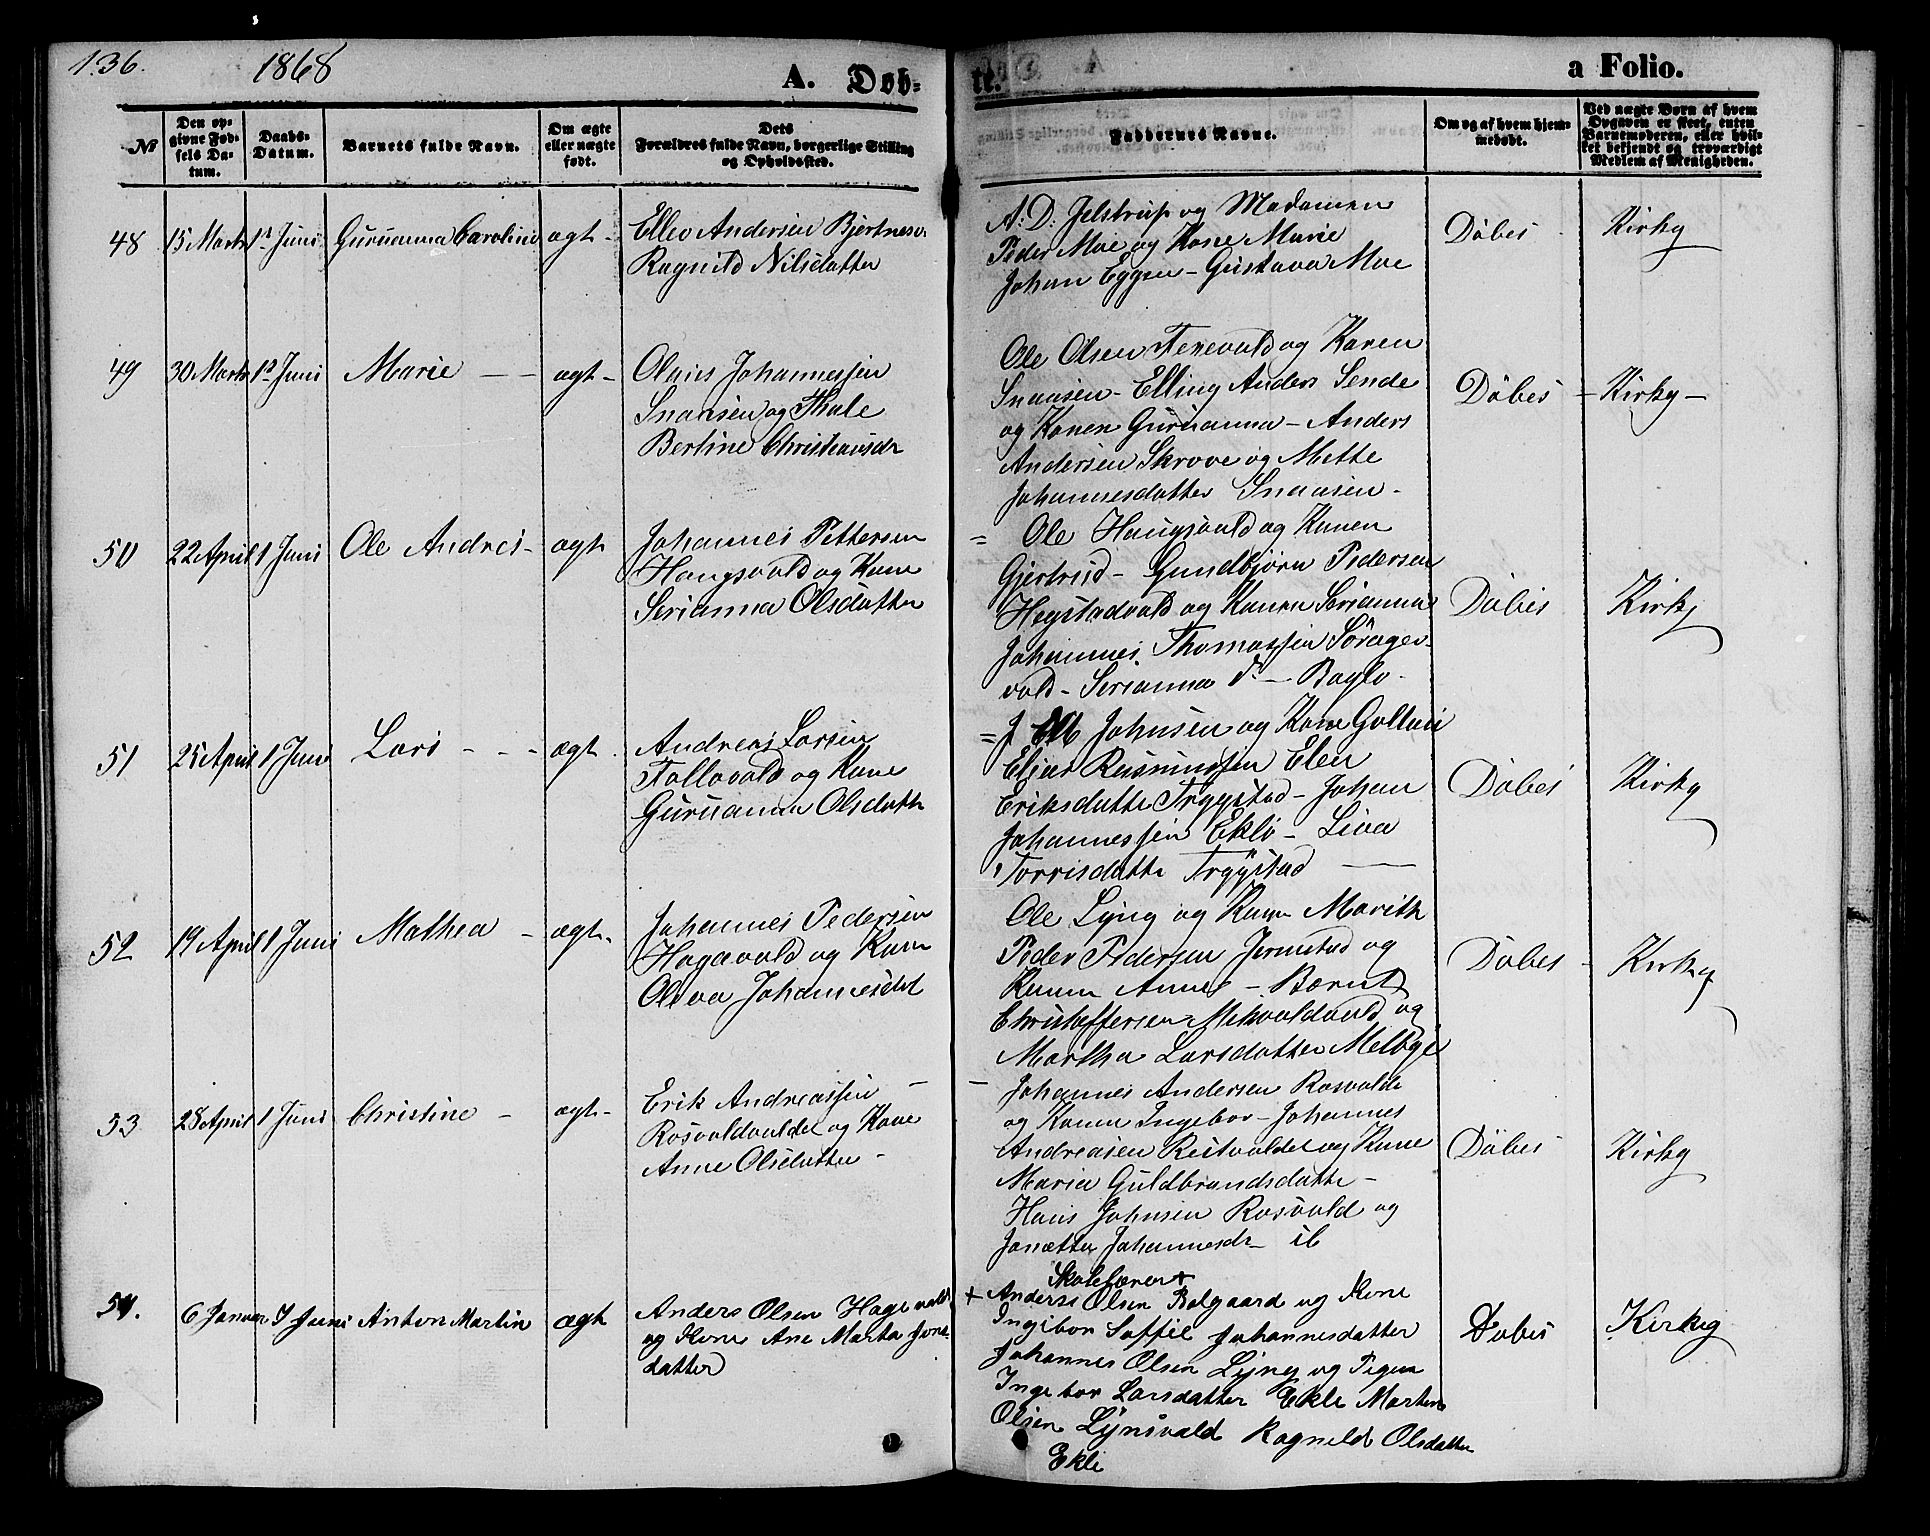 136.
1868
A. Døb-
te.
a Folio.
№
Den op-
givne Fød-
sels Da-
tum.
Daabs-
Datum.
Barnets fulde Navn.
Om ægte
eller uægte
født.
Dets
Forældres fulde Navn, borgerlige Stilling
og Opholdssted.
Faddernes Navne.
Om og af hvem hjem-
medøbt.
Ved uægte Børn af hvem
Opgaven er skeet, enten
Barnemoderen, eller hvil-
ket bekjendt og troværdigt
Medlem af Menigheden.
48
15 Marts
1 Juni
Guruanna Caroline
ægt -
Ellev Andersen Bjertnes
Ragnild Nilsdatter
A: D: Jelstrup og Madamen
Peder Moe og Kone Marie
Johan Eggen - Gustava Moe
Døbes
Kirky
49
30 Marts
1 Juni
Marie - -
ægt -
Olaus Johannessen
Snausen og Thale
Bertine Christensdr
Ole Olsen og Konen
Snausen - Elling Anders Sende
og Konen Guruanna - Anders
Andersen Skrove og Mette
Johannesdatter Snausen -
Døbes -
Kirky -
50
22 April
1 Juni
Ole Andres -
ægt
Johannes Pettersen
Haugsvald og Kone
Serianna Olsdatter
= Ole Haugsvald og Konen
Gjertrud - Gundbjørn Pedersen
Hegstadvald og Konen Serianna
Johannes Thomassen
vald - Serianna
Døbes
Kirky
51
25 April
1 Juni
Lars - - -
ægt -
Andreas Larsen
Follovald og Kone
Guruanna Olsdatter
= J Johnsen og Kone
Elias Rasmussen Elen
Eriksdatter Trygstad - Johan
Johannessen Eklo - Lina
Torrisdatter Trygstad
Døbes
Kirky
52
19 April
1 Juni
Mathea -
ægt -
Johannes Pedersen
Hagavald og Kone
Oliva Johannesdat
Ole Lyng og Kone Marith
Peder Pedersen Jermstad og
Konen Anne - Bærnt
Christoffersen og
Martha Larsdatter Melbye
Døbes -
Kirky
53
28 April
1 Juni
Christine -
ægt -
Erik Andreassen -
Rosvaldvalde og Kone
Anne Olsdatter -
- Johannes Andersen Rosvalde
og Konen Ingebor - Johannes
Andreasen og Kone
Maria Guldbrandsdatter -
Hans Johnsen Rosvald og
Janætta Johannesdr - ib
Døbes
Kirky
54.
6 Januar
7 Juni
Anton Martin
ægt
Anders Olsen Hagevald
og Kone Ane Marta Jons
datter
Skolelærer +
+ Anders Olsen Bolgaard og Kone
Ingibor Soffie Johannesdatter
Johannes Olsen Lyng og Pigen
Ingebor Larsdatter Ekle Morten
Olsen Lynsvald Ragneld Olsdatter
Ekle
Døbes
Kirkeg